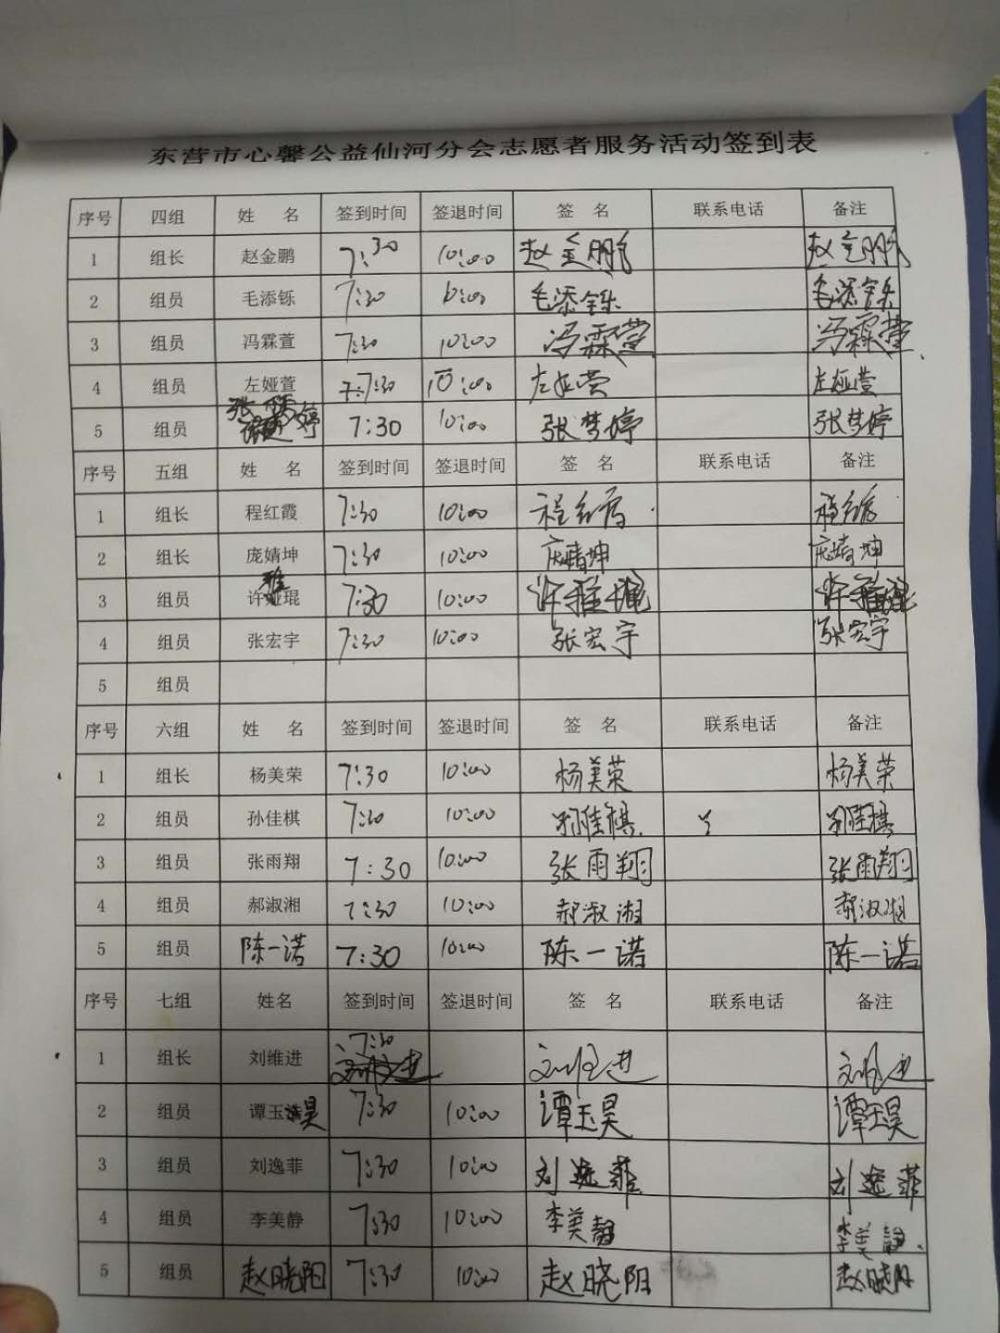 东营市心馨公益仙河分会志愿者服务活动签到表
序号 四组 姓 名 签到时间 签退时间 签 名 联系电话 备注
1 组长 赵金鹏 7:30 10:00 赵金鹏 赵金鹏
2 组员 毛添铄 7:30 10:00 毛添铄 毛添铄
3 组员 冯霖萱 7:30 10:00 冯霖萱 冯霖萱
4 组员 左娅萱 7:30 10:00 左娅萱 左娅萱
5 组员 张梦婷 7:30 10:00 张梦婷 张梦婷
序号 五组 姓 名 签到时间 签退时间 签 名 联系电话 备注
1 组长 程红霞 7:30 10:00 程红霞 程红霞
2 组长 庞婧坤 7:30 10:00 庞婧坤 庞婧坤
3 组员 许雅琨 7:30 10:00 许雅琨 许雅琨
4 组员 张宏宇 7:30 10:00 张宏宇 张宏宇
5 组员
序号 六组 姓 名 签到时间 签退时间 签 名 联系电话 备注
1 组长 杨美荣 7:30 10:00 杨美荣 杨美荣
2 组员 孙佳棋 7:30 10:00 孙佳棋 孙佳棋
3 组员 张雨翔 7:30 10:00 张雨翔 张雨翔
4 组员 郝淑湘 7:30 10:00 郝淑湘 郝淑湘
5 组员 陈一诺 7:30 10:00 陈一诺 陈一诺
序号 七组 姓名 签到时间 签退时间 签 名 联系电话 备注
1 组长 刘维进 7:30 刘维进 刘维进
2 组员 谭玉昊 7:30 10:00 谭玉昊 谭玉昊
3 组员 刘逸菲 7:30 10:00 刘逸菲 刘逸菲
4 组员 李美静 7:30 10:00 李美静 李美静
5 组员 赵晓阳 7:30 10:00 赵晓阳 赵晓阳